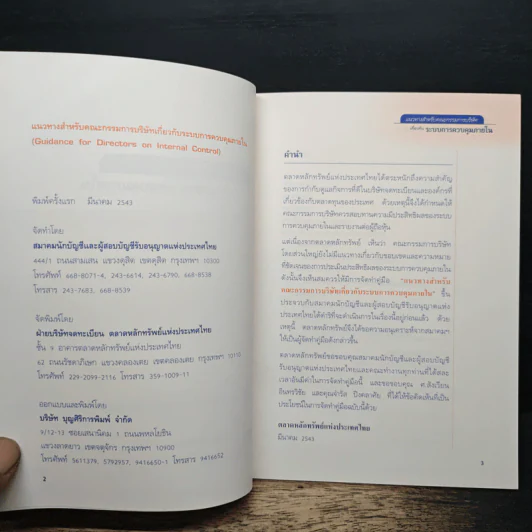 แนวทางสำหรับคณะกรรมการบริษัทเกี่ยวกับระบบการควบคุมภายใน
(Guidance for Directors on Internal Control)
พิมพ์ครั้งแรก มีนาคม 2543
จัดทำโดย
สมาคมนักบัญชีและผู้สอบบัญชีรับอนุญาตแห่งประเทศไทย
444/1 ถนนสามเสน แขวงดุสิต เขตดุสิต กรุงเทพฯ 10300
โทรศัพท์ 668-8071-4, 243-6614, 243-6790, 668-8538
โทรสาร 243-7683, 668-8539
จัดพิมพ์โดย
ฝ่ายบริษัทจดทะเบียน ตลาดหลักทรัพย์แห่งประเทศไทย
ชั้น 9 อาคารตลาดหลักทรัพย์แห่งประเทศไทย
62 ถนนรัชดาภิเษก แขวงคลองเตย เขตคลองเตย กรุงเทพฯ 10110
โทรศัพท์ 229-2099-2116 โทรสาร 359-1009-11
ออกแบบและพิมพ์โดย
บริษัท บุญศิริการพิมพ์ จำกัด
9/12-13 ซอยเสนานิคม 1 ถนนพหลโยธิน
แขวงลาดยาว เขตจตุจักร กรุงเทพฯ 10900
โทรศัพท์ 5611379, 5792957, 9416650-1 โทรสาร 9416652
2
แนวทางสำหรับคณะกรรมการบริษัท
เกี่ยวกับ ระบบการควบคุมภายใน
คำนำ
ตลาดหลักทรัพย์แห่งประเทศไทยได้ตระหนักถึงความสำคัญ
ของการกำกับดูแลกิจการที่ดีในบริษัทจดทะเบียนและองค์กรที่
เกี่ยวข้องกับตลาดทุนของประเทศ ด้วยเหตุนี้จึงได้กำหนดให้
คณะกรรมการบริษัทควรสอบทานความมีประสิทธิผลของระบบ
การควบคุมภายในและรายงานต่อผู้ถือหุ้น
แต่เนื่องจากตลาดหลักทรัพย์ เห็นว่า คณะกรรมการบริษัท
โดยส่วนใหญ่ยังไม่มีแนวทางเกี่ยวกับขอบเขตและความหมาย
ที่ชัดเจนของการประเมินประสิทธิผลของระบบการควบคุมภายใน
ดังนั้นจึงเห็นสมควรให้มีการจัดทำคู่มือ "แนวทางสำหรับ
คณะกรรมการบริษัทเกี่ยวกับระบบการควบคุมภายใน" ขึ้น
ประจวบกับสมาคมนักบัญชีและผู้สอบบัญชีรับอนุญาตแห่ง
ประเทศไทยได้ดำริที่จะดำเนินการในเรื่องนี้อยู่ก่อนแล้ว ด้วย
เหตุนี้ ตลาดหลักทรัพย์จึงได้ขอความอนุเคราะห์จากสมาคมฯ
ให้เป็นผู้จัดทำคู่มือดังกล่าวขึ้น
ตลาดหลักทรัพย์ขอขอบคุณสมาคมนักบัญชีและผู้สอบบัญชี
รับอนุญาตแห่งประเทศไทยและคณะทำงานทุกท่านที่ได้สละ
เวลาอันมีค่าในการจัดทำคู่มือนี้ และขอขอบคุณ ศ.สังเวียน
อินทรวิชัย และคุณจำรัส ปิงคลาศัย ที่ได้ให้ข้อคิดเห็นที่เป็น
ประโยชน์ในการจัดทำคู่มือฉบับนี้ด้วย
ตลาดหลักทรัพย์แห่งประเทศไทย
มีนาคม 2543
3